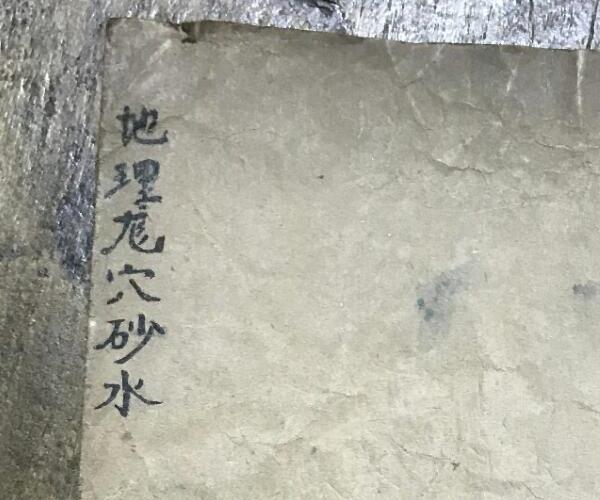 地理尨穴砂水